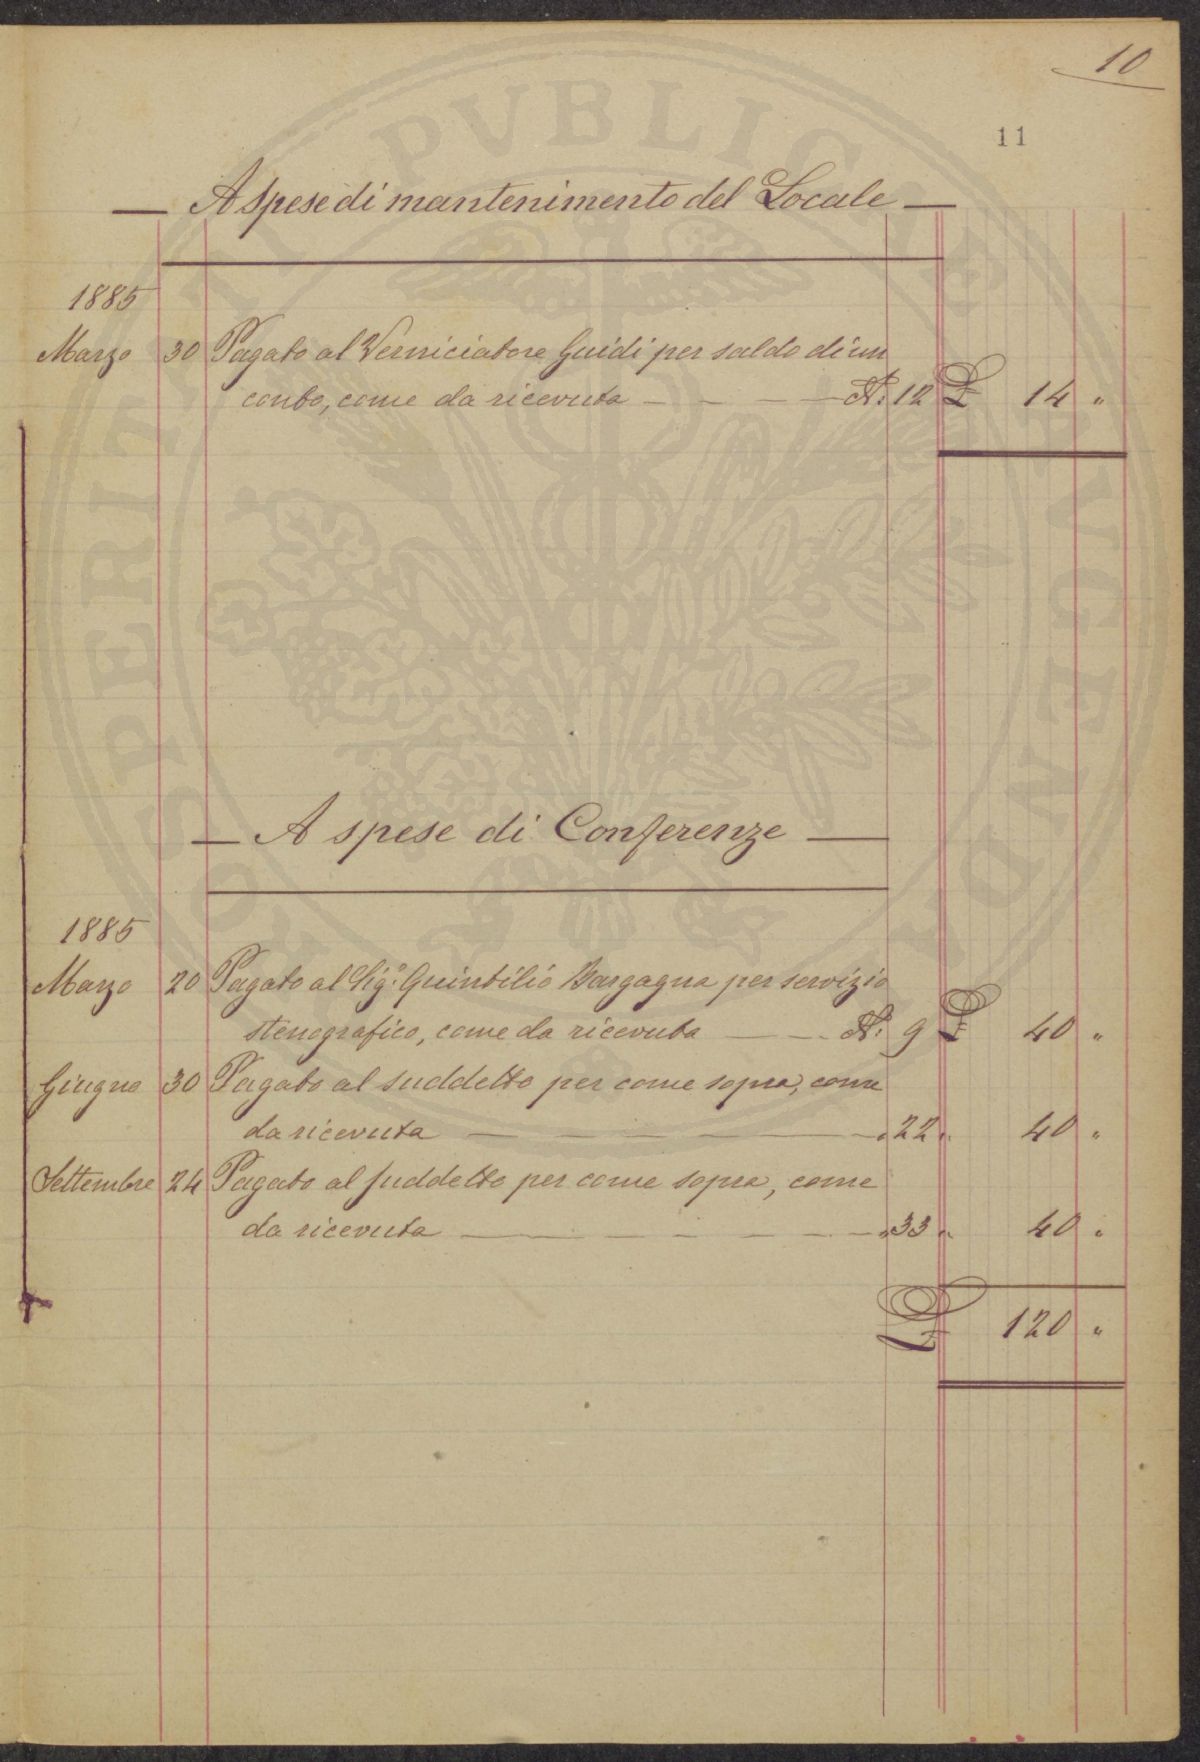 10
11
A spese di mantenimento del Locale
1885
Marzo 30 Pagato al Verniciatore Guidi per saldo di un
conto, come da ricevuta — N: 12 £ 14 "
A spese di Conferenze
1885
Marzo 20 Pagato al Sig.º Quintilio Bargagna per servizio
stenografico, come da ricevuta — N: 9 £ 40 "
Giugno 30 Pagato al suddetto per come sopra, come
da ricevuta — " 22 " 40 "
Settembre 24 Pagato al suddetto per come sopra, come
da ricevuta — " 33 " 40 "
£ 120 "